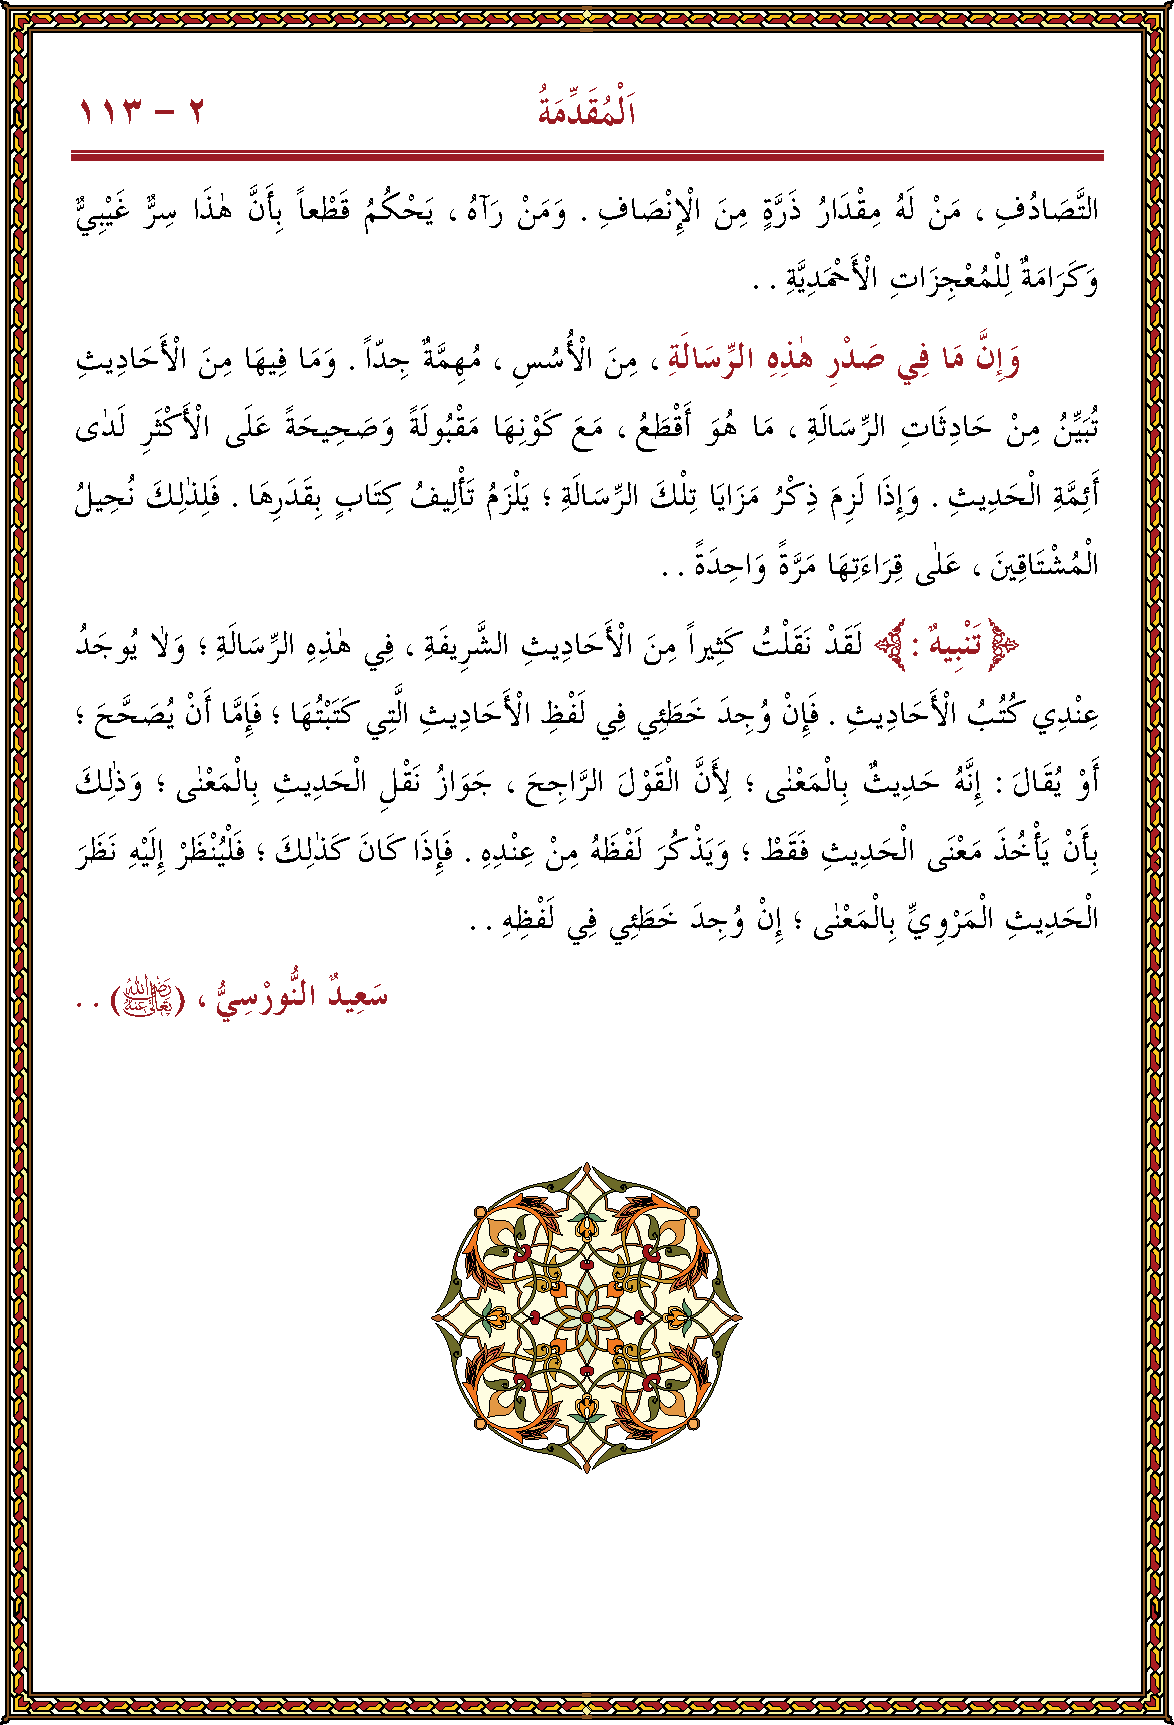 اَلْمُقَدِّمَةُ
٢ - ١١٣
التَّصَادُفِ ، مَنْ لَهُ مِقْدَارُ ذَرَّةٍ مِنَ الْإِنْصَافِ . وَمَنْ رَآهُ ، يَحْكُمُ قَطْعاً بِأَنَّ هٰذَا سِرٌّ غَيْبِيٌّ
وَكَرَامَةٌ لِلْمُعْجِزَاتِ الْأَحْمَدِيَّةِ . .
وَإِنَّ مَا فِي صَدْرِ هٰذِهِ الرِّسَالَةِ ، مِنَ الْأُسُسِ ، مُهِمَّةٌ جِدّاً . وَمَا فِيهَا مِنَ الْأَحَادِيثِ
تُبَيِّنُ مِنْ حَادِثَاتِ الرِّسَالَةِ ، مَا هُوَ أَقْطَعُ ، مَعَ كَوْنِهَا مَقْبُولَةً وَصَحِيحَةً عَلَى الْأَكْثَرِ لَدٰى
أَئِمَّةِ الْحَدِيثِ . وَإِذَا لَزِمَ ذِكْرُ مَزَايَا تِلْكَ الرِّسَالَةِ ؛ يَلْزَمُ تَأْلِيفُ كِتَابٍ بِقَدَرِهَا . فَلِذٰلِكَ نُحِيلُ
الْمُشْتَاقِينَ ، عَلٰى قِرَاءَتِهَا مَرَّةً وَاحِدَةً . .
﴿تَنْبِيهٌ : ﴾ لَقَدْ نَقَلْتُ كَثِيراً مِنَ الْأَحَادِيثِ الشَّرِيفَةِ ، فِي هٰذِهِ الرِّسَالَةِ ؛ وَلاٰ يُوجَدُ
عِنْدِي كُتُبُ الْأَحَادِيثِ . فَإِنْ وُجِدَ خَطَئِي فِي لَفْظِ الْأَحَادِيثِ الَّتِي كَتَبْتُهَا ؛ فَإِمَّا أَنْ يُصَحَّحَ ؛
أَوْ يُقَالَ : إِنَّهُ حَدِيثٌ بِالْمَعْنٰى ؛ لِأَنَّ الْقَوْلَ الرَّاجِحَ ، جَوَازُ نَقْلِ الْحَدِيثِ بِالْمَعْنٰى ؛ وَذٰلِكَ
بِأَنْ يَأْخُذَ مَعْنَى الْحَدِيثِ فَقَطْ ؛ وَيَذْكُرَ لَفْظَهُ مِنْ عِنْدِهِ . فَإِذَا كَانَ كَذٰلِكَ ؛ فَلْيُنْظَرْ إِلَيْهِ نَظَرَ
الْحَدِيثِ الْمَرْوِيِّ بِالْمَعْنٰى ؛ إِنْ وُجِدَ خَطَئِي فِي لَفْظِهِ . .
سَعِيدٌ النُّورْسِيُّ ، (رَضِيَ اللهُ تَعَالَى عَنْهُ) . .